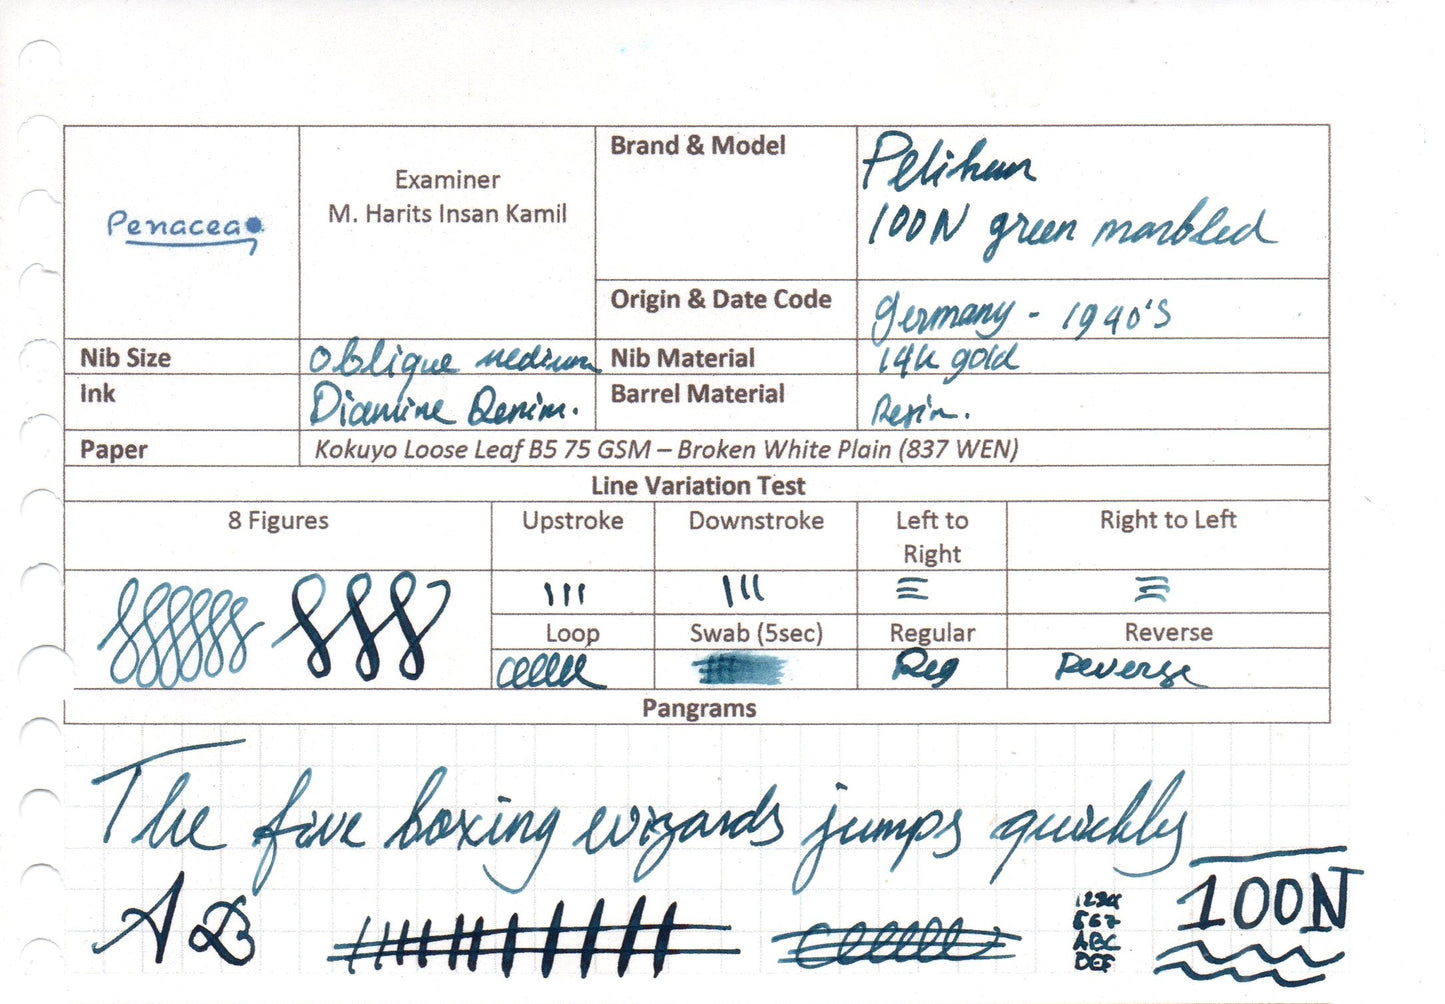 Penacea
Examiner
M. Harits Insan Kamil
Brand & Model
Pelikan
100N green marbled
Origin & Date Code
Germany - 1940's
Nib Size
oblique medium
Nib Material
14k gold
Ink
Diamine Denim.
Barrel Material
Resin.
Paper
Kokuyo Loose Leaf B5 75 GSM – Broken White Plain (837 WEN)
Line Variation Test
8 Figures
Upstroke
Downstroke
Left to
Right
Right to Left
Loop
Swab (5sec)
Regular
Reverse
Reg
Reverse
Pangrams
The five boxing wizards jumps quickly
AB
1234
567
ABC
DEF
100N